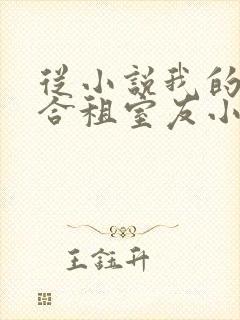 從小說我的
合租室友小
王鈺升